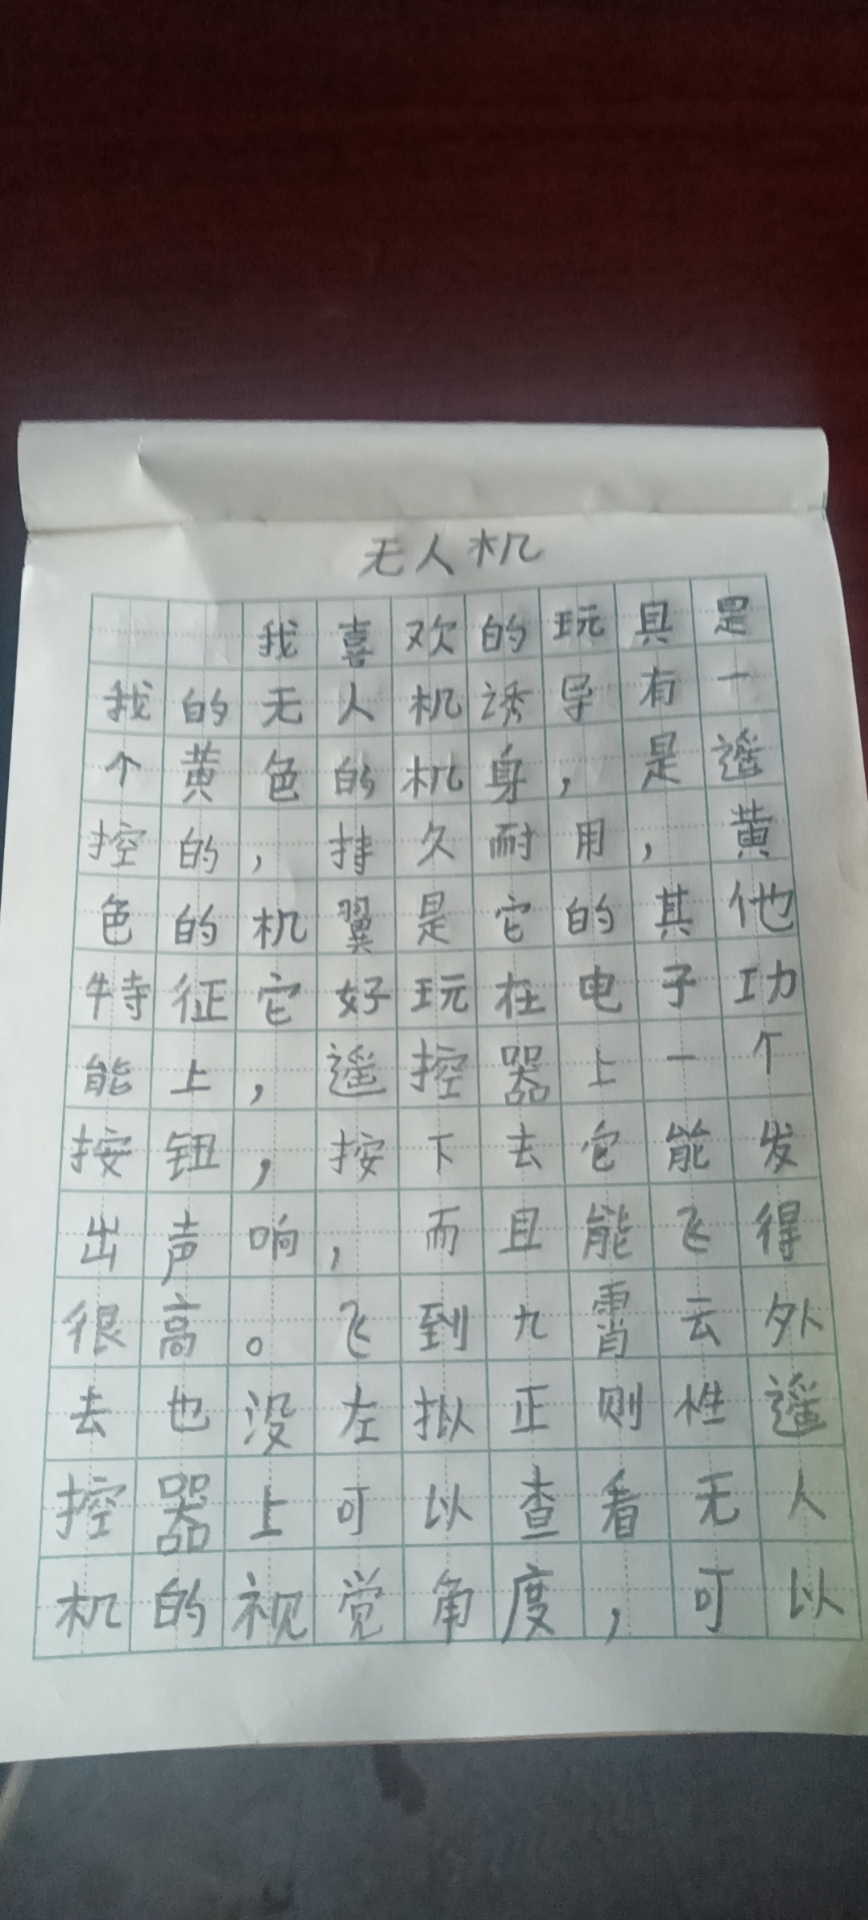 无人机
我喜欢的玩具是
我的无人机诱导有一
个黄色的机身，是遥
控的，持久耐用，黄
色的机翼是它的其他
特征它好玩在电子功
能上，遥控器上一个
按钮，按下去它能发
出声响，而且能飞得
很高。飞到九霄云外
去也没左拟正则性遥
控器上可以查看无人
机的视觉角度，可以